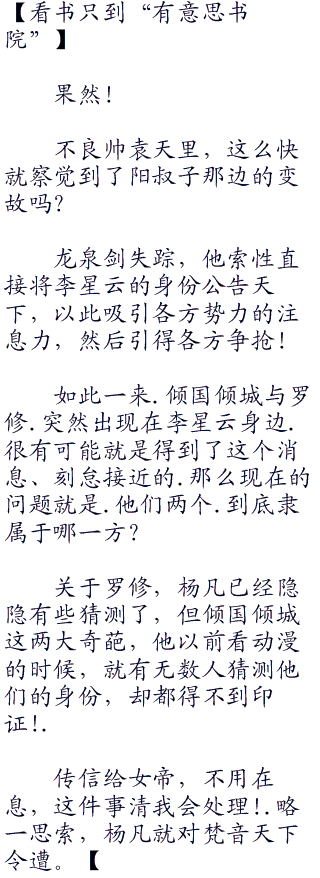 【看书只到“有意思书
院”】
果然！
不良帅袁天里，这么快
就察觉到了阳叔子那边的变
故吗？
龙泉剑失踪，他索性直
接将李星云的身份公告天
下，以此吸引各方势力的注
息力，然后引得各方争抢！
如此一来.倾国倾城与罗
修.突然出现在李星云身边.
很有可能就是得到了这个消
息、刻怠接近的.那么现在的
问题就是.他们两个.到底隶
属于哪一方？
关于罗修，杨凡已经隐
隐有些猜测了，但倾国倾城
这两大奇葩，他以前看动漫
的时候，就有无数人猜测他
们的身份，却都得不到印
证!.
传信给女帝，不用在
息，这件事清我会处理!.略
一思索，杨凡就对梵音天下
令遭。【